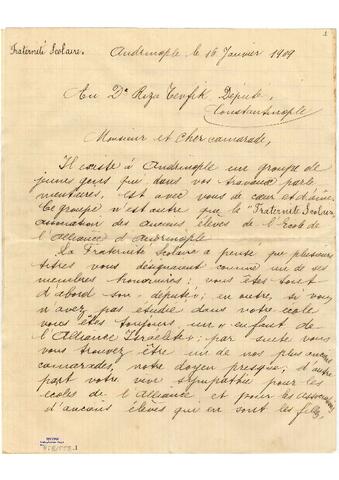 1
Fraternité Scolaire.
Andrinople le 16 Janvier 1909
Au Dr Riza Tevfik Député,
Constantinople
Monsieur et cher camarade,
Il existe à Andrinople un groupe de
jeunes gens qui dans vos travaux parle
mentaires, est avec vous de cœur et d'âme.
Ce groupe n'est autre que la "Fraternité Scolaire,
association des anciens élèves de l'École de
l'Alliance d'Andrinople
La Fraternité Scolaire a pensé que plusieurs
titres vous désignaient comme un de ses
membres honoraires: vous êtes tout
d'abord son "député"; en outre, si vous
n'avez pas étudié dans notre école
vous êtes toujours un "enfant de
l'Alliance Israélite"; par suite vous
vous trouvez être un de nos plus anciens
camarades, notre doyen presque; d'autre
part votre vive sympathie pour les
écoles de l'Alliance et pour les associations
d'anciens élèves qui en sont les filles,